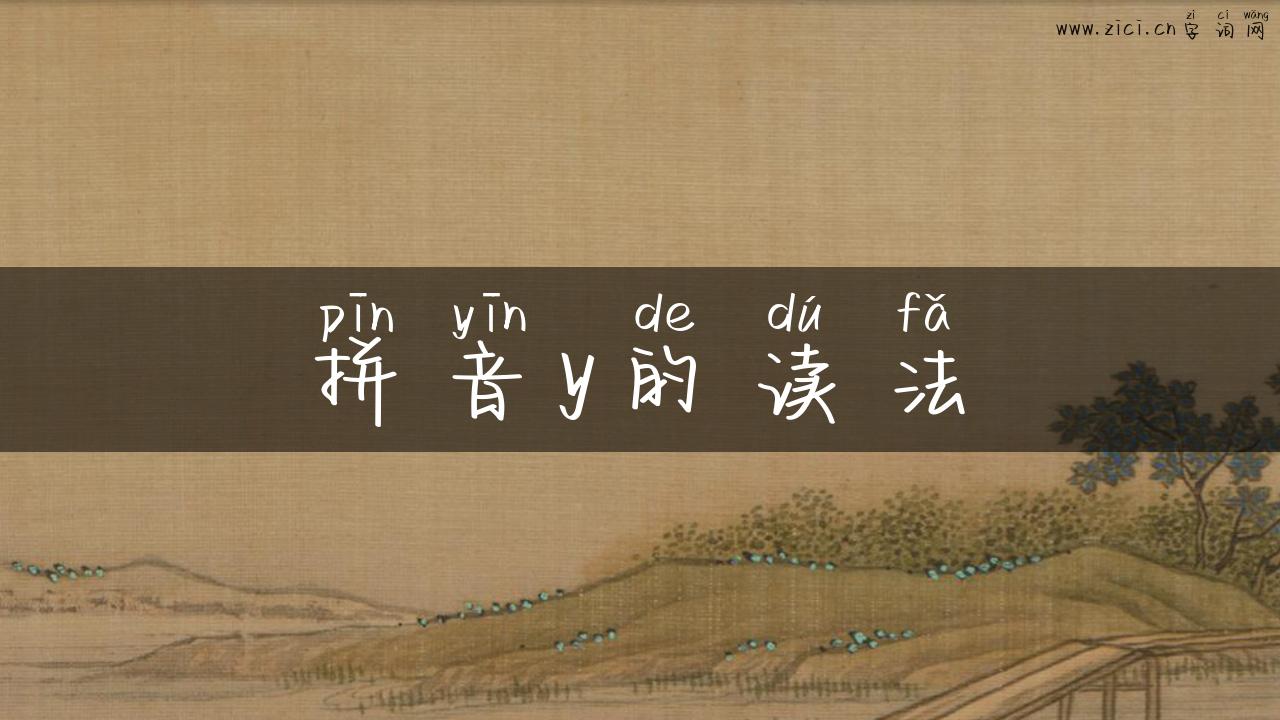 zì cí wǎng
www.zici.cn字词网
pīn yīn de dú fǎ
拼音y的读法